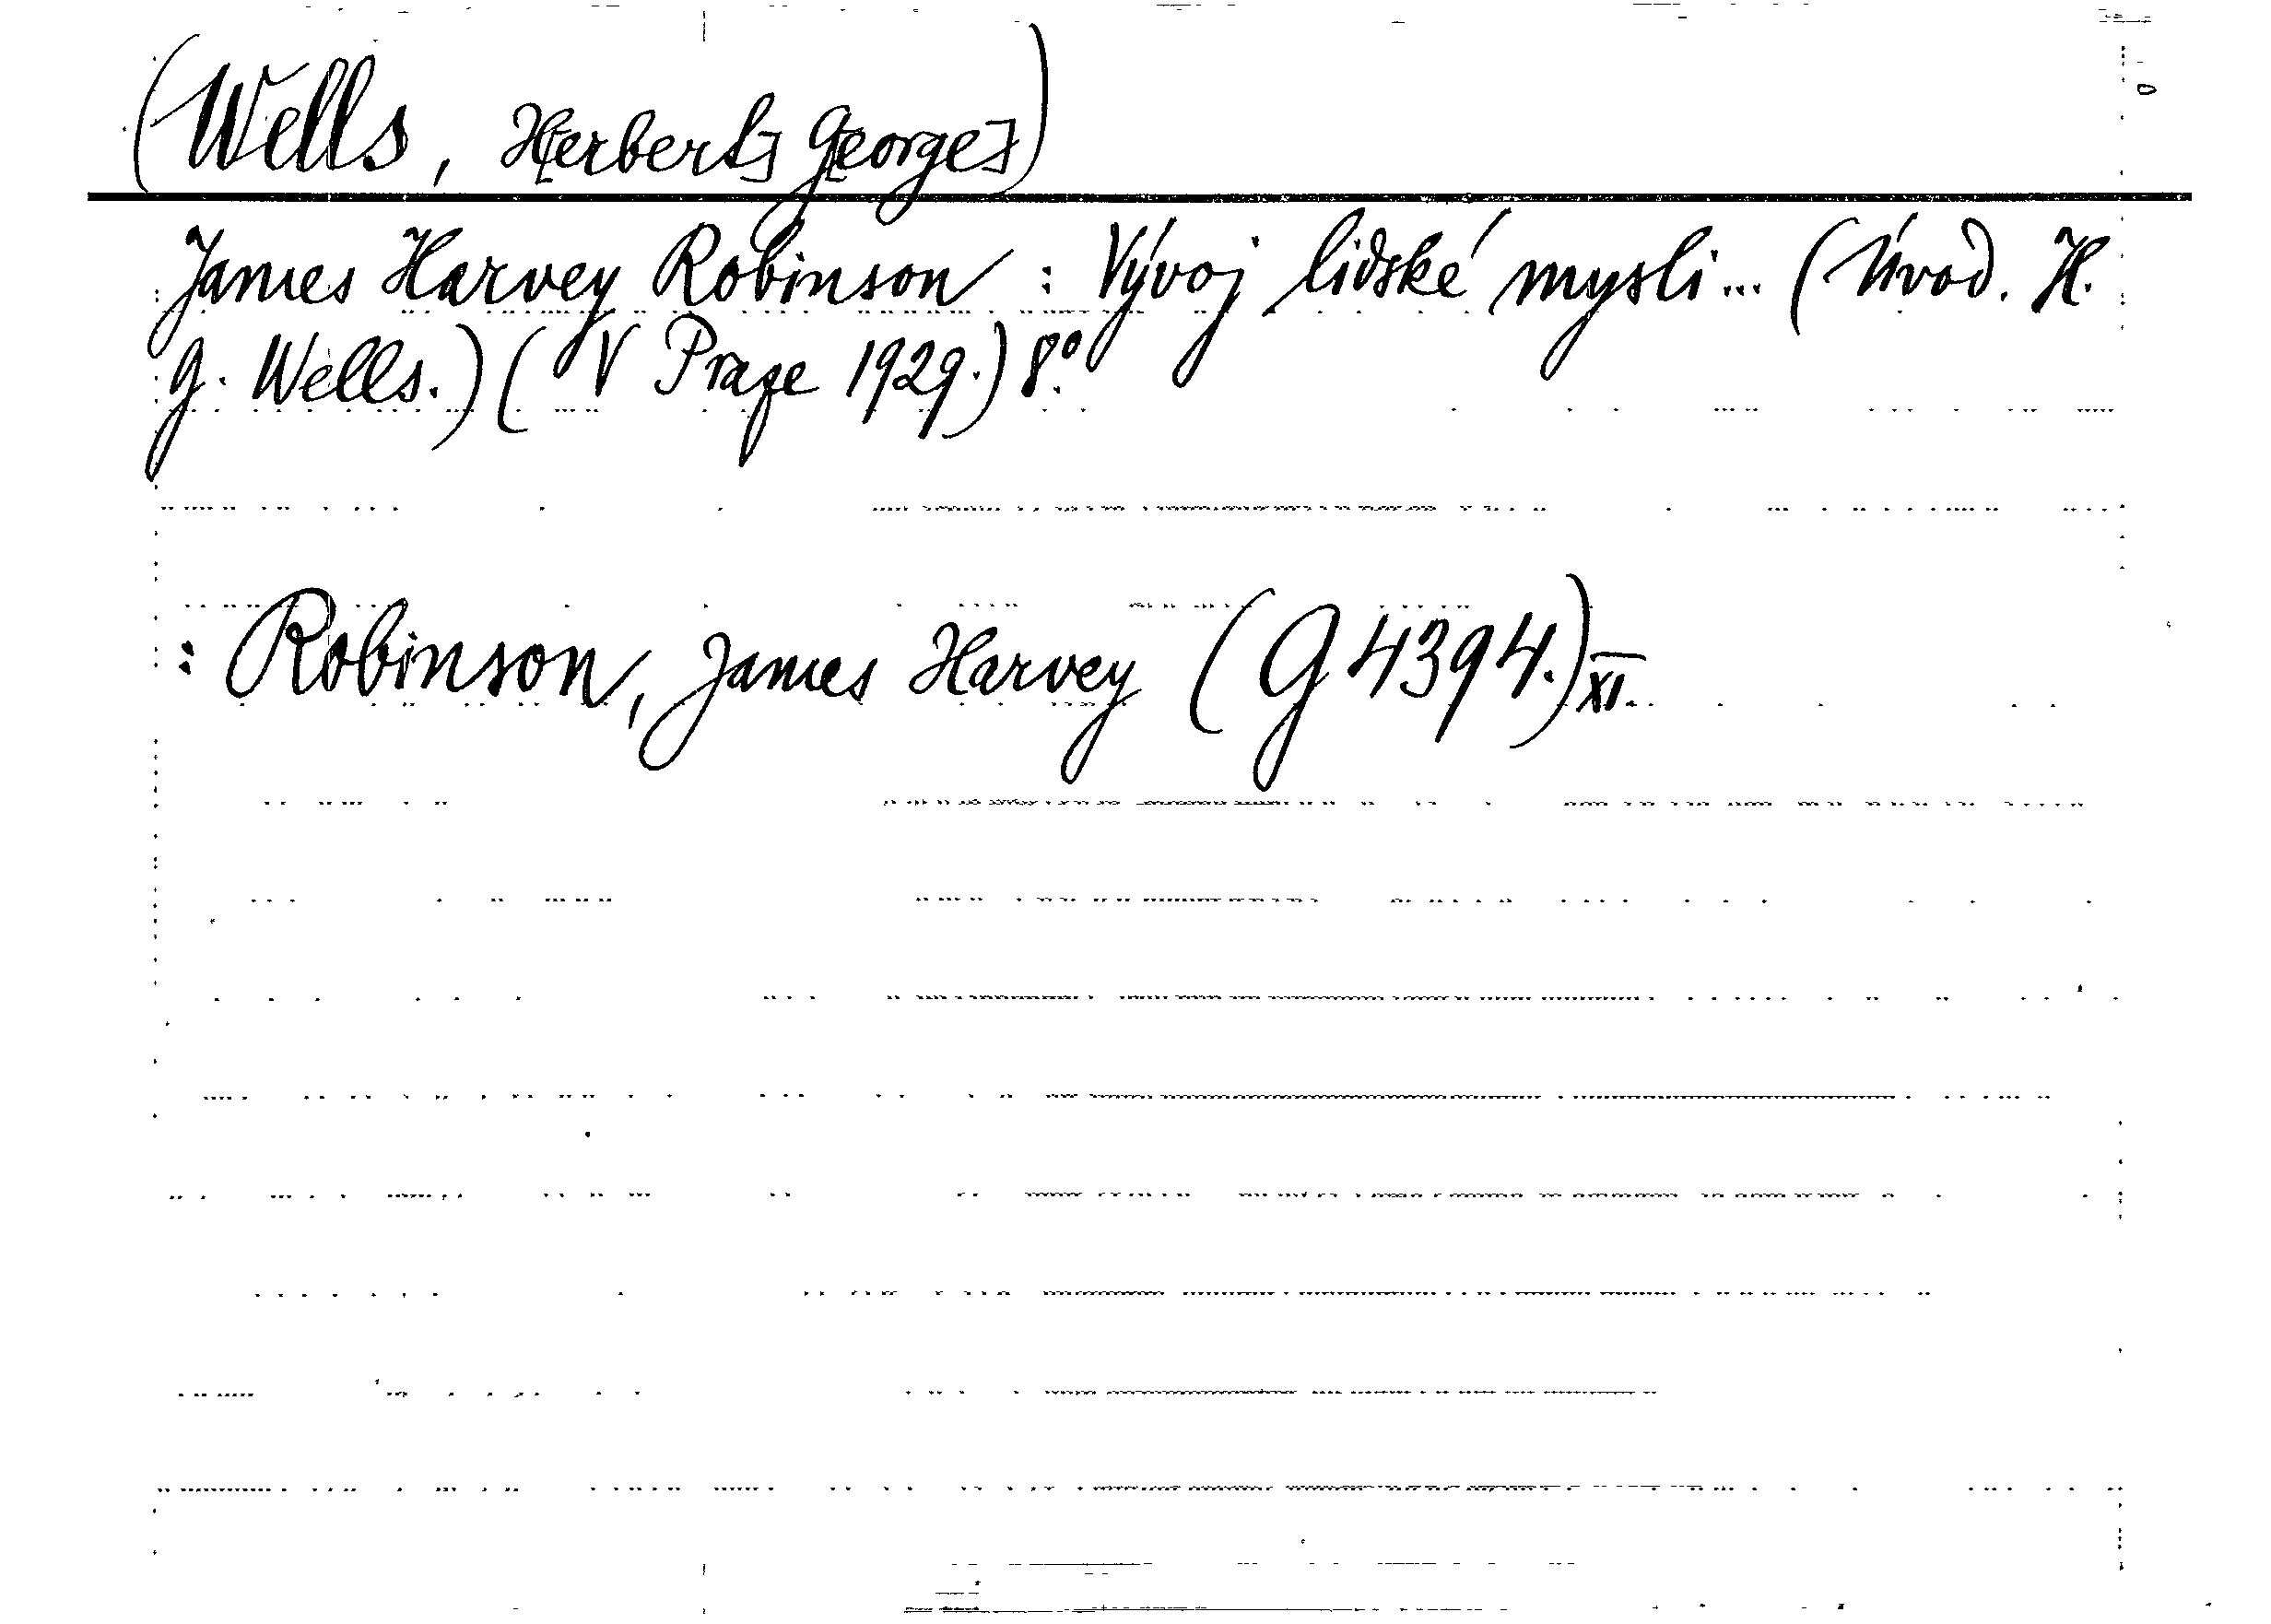 (Wells, H[erbert] G[eorge])
James Harvey Robinson : Vývoj lidské mysli... (Úvod. H.
G. Wells.) ( V Praze 1929.) 8°.
: Robinson, James Harvey (G 4394.) XI.